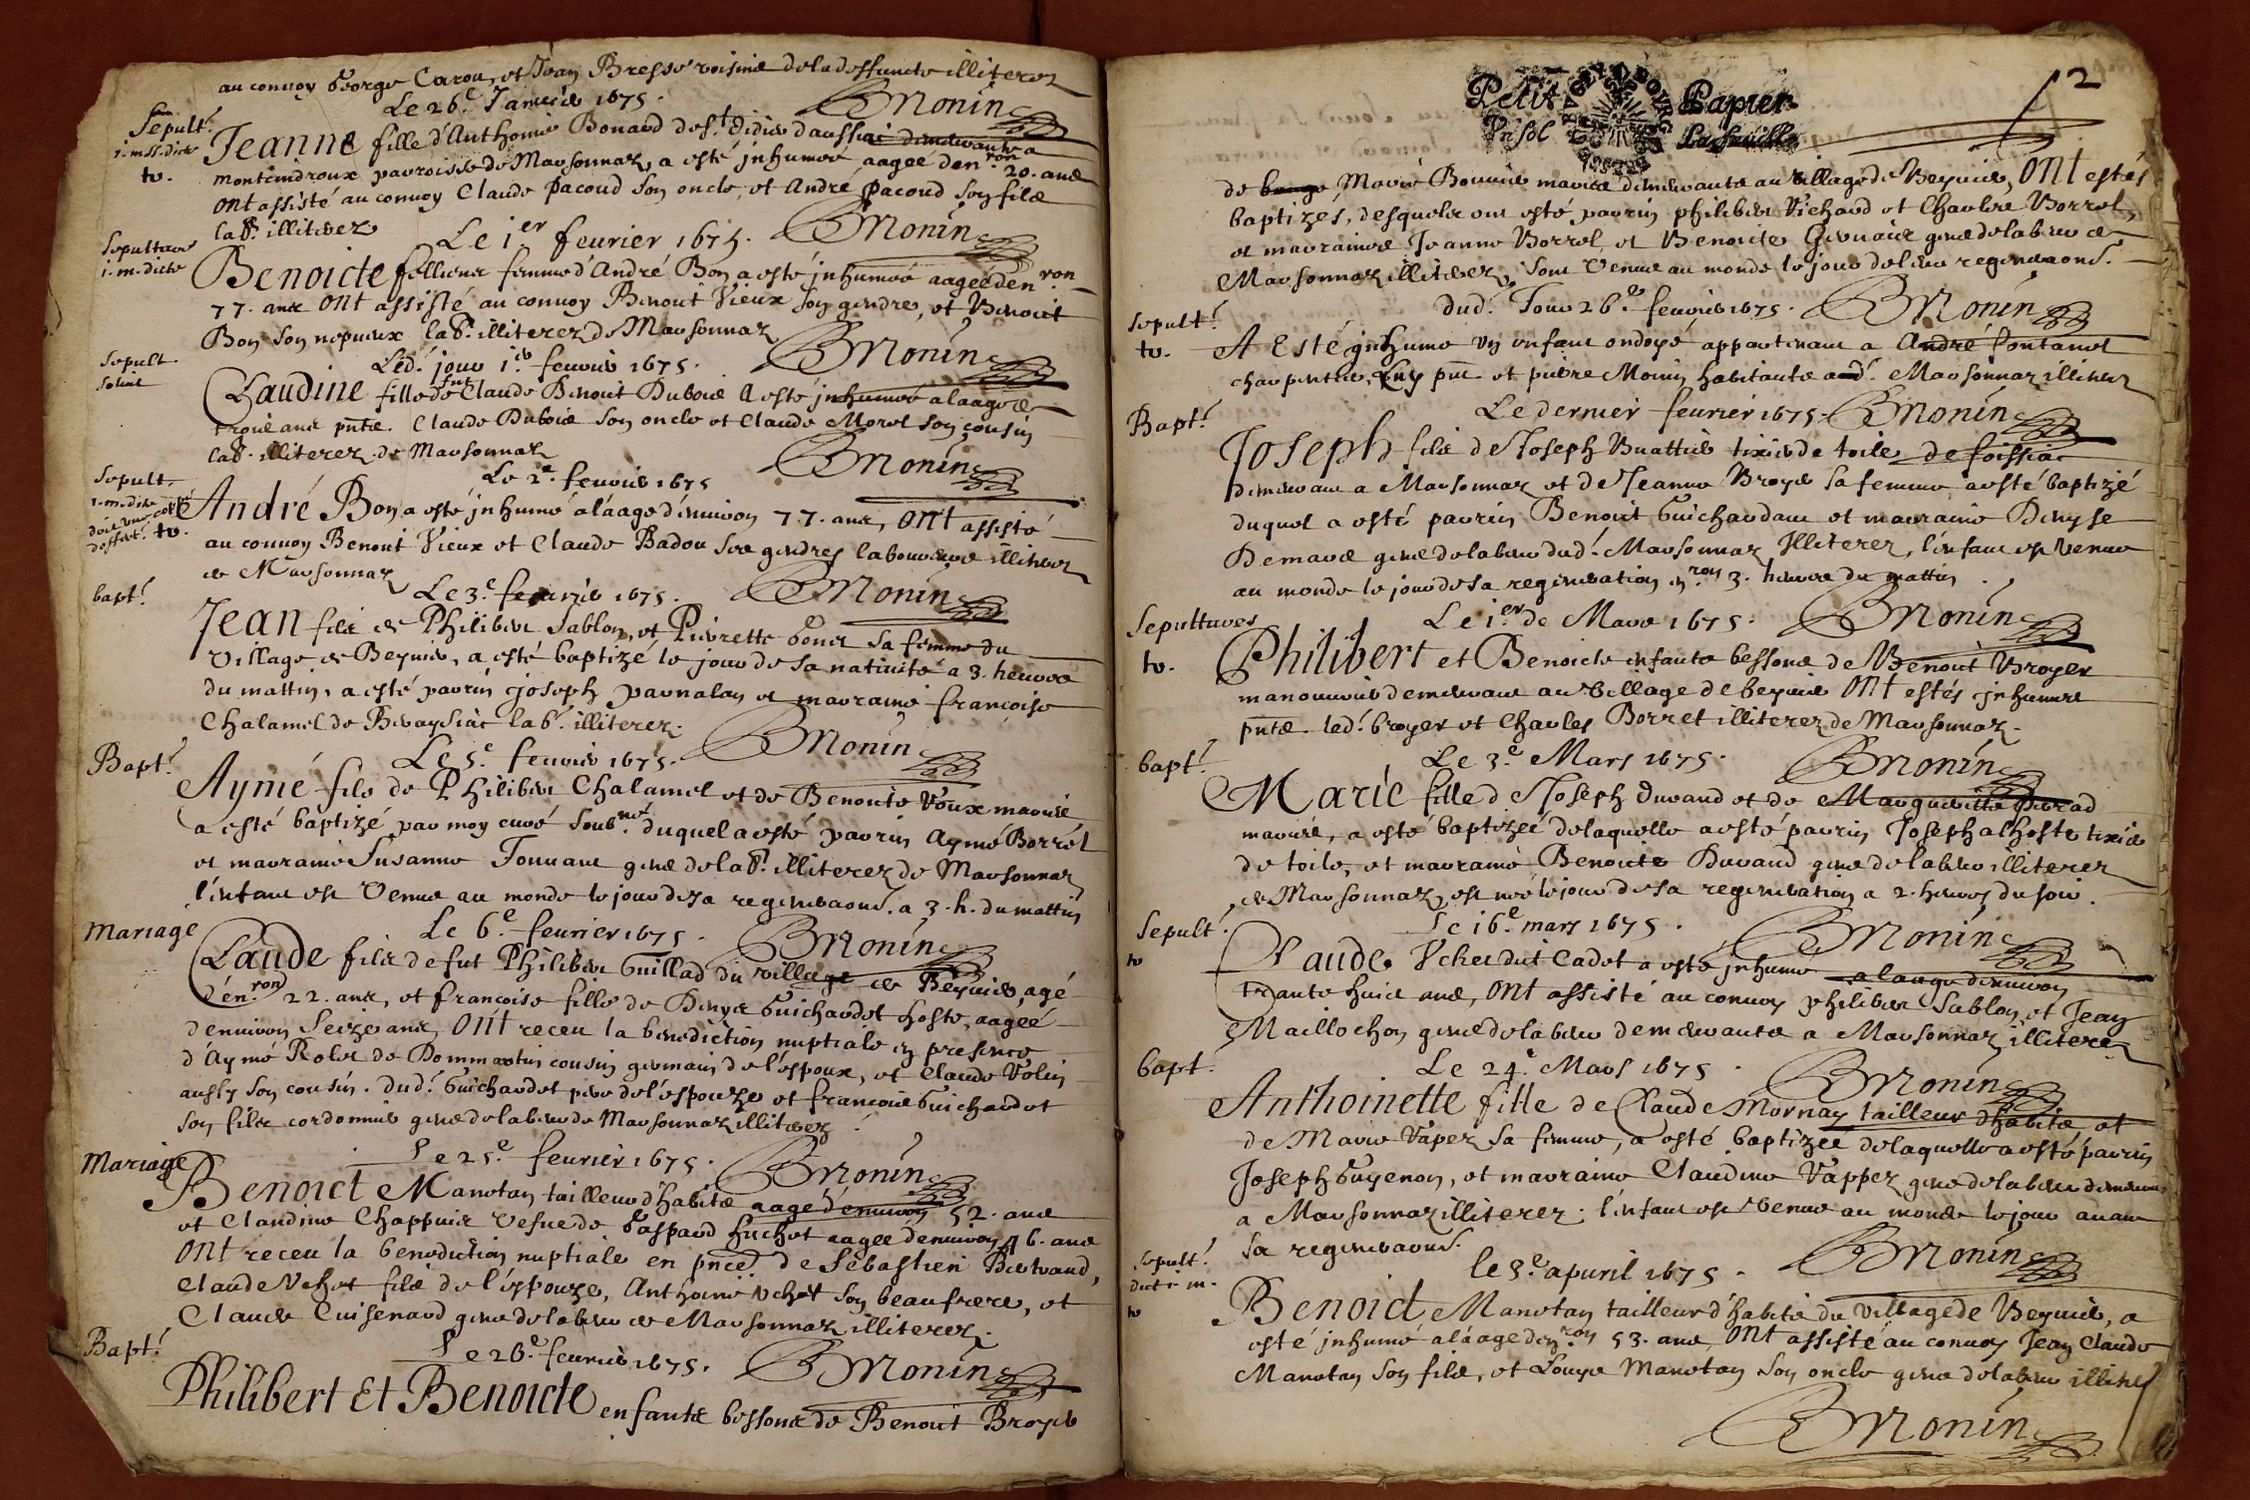 au convoy George Carou, et Jean Bresse voisins de la deffuncte illiterez
Le 26.e Janvier 1675.
BMonin
Sepult.
Jeanne fille d'Anthoine Bonard de st. didier daussiat demeurante a
montcindroux parroisse de Marsonnaz, a esté inhumee aagee den.ron 20. ans
ont assisté au convoy Claude pacoud son oncle, et André pacoud son fils
lab.rs illiterez
BMonin
Sepulture
Le 1er feurier 1675.
Benoicte felliena femme d'André Bon a esté inhumée aagée den.ron
77. ans ont assisté au convoy Benoit Vieux son gendre, et Benoit
Bon son nepveux lab.rs illiterez de Marsonnaz
BMonin
Sepult
Led. jour 1.er feurier 1675.
Claudine fille de fut Claude Benoit Dubois a esté inhumée a laage de
trois ans pnts. Claude Dubois son oncle et Claude Morel son cousin
lab.rs illiterez de Marsonnaz
BMonin
Sepult.
Le 2.e feurier 1675
André Bon a esté inhumé a láage d'environ 77. ans, ont assisté
au convoy Benoit Vieux et Claude Badou ses gendres laboureurs illiterez
de Marsonnaz
BMonin
bapt.
Le 3.e feurier 1675.
Jean fils de Philibert Sablon, et Pierrette Goner sa femme du
village de Beynier, a esté baptizé le jour de sa nativité a 3. heures
du mattin, a esté parrin Joseph parnalan et marraine françoise
Chalamel de Bevaysiat lab.rs illiterez.
BMonin
Bapt.
Le 5.e feurier 1675.
Aymé fils de Philibert Chalamel et de Benoite Voux mariés
a esté baptizé par moy curé soub.né duquel a esté parrin Aymé Borrel
et marraine Susanne Tournant gens de lab.r illiterez de Marsonnaz
l'enfant est venu au monde le jour de sa regeneraon. a 3. h. du mattin
Mariage
Le 6.e feurier 1675.
BMonin
Claude fils de fut Philibert Guillad du village de Beynier, agé
d'en.ron 22. ans, et françoise fille de Denys Guichardet hoste, aageé
d'environ seize ans, ont receu la benediction nuptiale en presence
d'Aymé Rolet de Dommartin cousin germain de l'espoux, et Claude Volin
aussy son cousin. dud. Guichardet pere de l'espouze et francois Guichardet
son fils cordonnier gens de labeur de Marsonnaz illiterez
Mariage
Le 25.e feurier 1675.
BMonin
Benoict Manetan tailleur d'habits aagé d'environ 52. ans
et Claudine Chappuis vefue de Gaspard fuchet aagée d'environ 46. ans
ont receu la benediction nuptiale en pnce de Sebastien Bertrand,
Claude Vchet fils de l'espouze, Anthoine Vchet son beaufrere, et
Claude Cuisenard gens de labeur de Marsonnaz illiterez.
Bapt.
Le 26.e feurier 1675.
BMonin
Philibert Et Benoicte enfants bessons de Benoit Broyer
Petit Papier
2
de Marie Bouvier mariés demeurants au village de Beynier, ont estés
baptizés, desquels ont esté parrins philibert Vichard et Charles Borrel,
et marraines Jeanne Borrel, et Benoite Gevnaix gens de labeur de
Marsonnaz illiterez, sont venus au monde le jour de leur regeneraons.
Sepult.
dud. Jour 26.e feurier 1675.
BMonin
A Esté inhumé un enfant ondoyé appartenant a André fontanel
charpentier, luy pnt. et pierre Monin habitants aud. Marsonnaz illiterez
Bapt.
Le dernier feurier 1675.
BMonin
Joseph fils de Joseph Buattier tixier de toile de foissiat
demeurant a Marsonnaz et de Jeanne Broyer sa femme a esté baptizé
duquel a esté parrin Benoit Guichardant et marraine Denyse
Demarse gens de labeur dud. Marsonnaz illiterez, l'enfant est venu
au monde le jour de sa regineration en.ron 3. heures du mattin
Sepultures
Le 1.er de Mars 1675.
BMonin
Philibert et Benoicte enfants bessons de Benoit Broyer
manouvrier demeurant au village de beynier ont estés inhumés
pnts. led. broyer et Charles Borret illiterez de Marsonnaz.
bapt.
Le 3.e Mars 1675.
BMonin
Marie fille de Joseph Durand et de Marguerite perrad
mariés, a esté baptizeé de laquelle a esté parrin Joseph alhoste tixier
de toile, et marraine Benoite Durand gens de labeur illiterez
de Marsonnaz, est née le jour de sa regineration a 2. heures du soir.
Sepult.
Le 16.e mars 1675.
BMonin
Claude Vchet dit Cadet a esté inhumé a laage denviron
trante huict ans, ont assisté au convoy philibert Sablon et Jean
Maillochon gens de labeur demeurants a Marsonnaz illiterez
bapt.
Le 24.e Mars 1675.
BMonin
Anthoinette fille de Claude Mornay tailleur d'habits et
de Marie Vapez sa femme, a esté baptizée de laquelle a esté parrin
Joseph Guyenon, et marraine Claudine Vappez gens de labeur demeurants
a Marsonnaz illiterez. l'enfant est venue au monde le jour avant
sa regeneraon.
BMonin
Sepult.
le 3.e apuril 1675.
Benoict Manetan tailleur d'habits du village de Beynier, a
esté inhumé a láage den.ron 53. ans, ont assisté au convoy Jean Claude
Manetan son fils, et Louys Manetan son oncle gens de labeur illiterez
BMonin